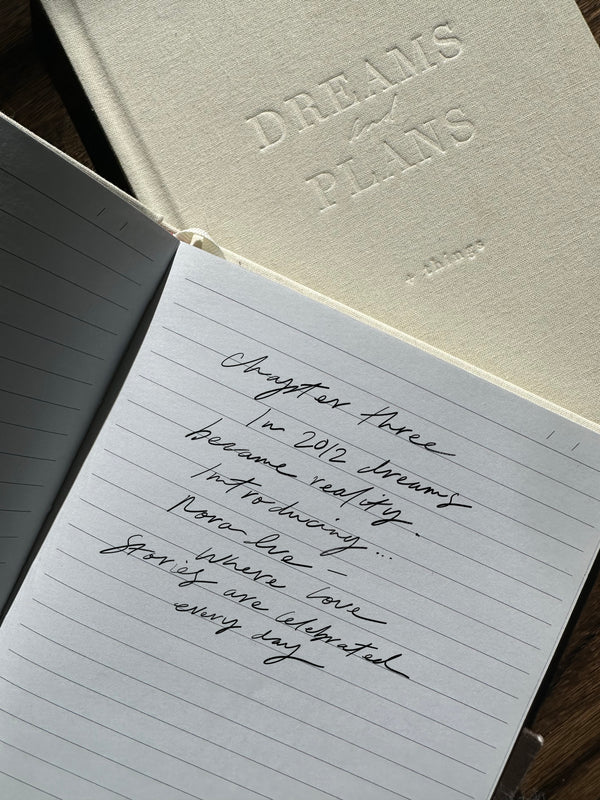 DREAMS
and
PLANS
+ things
Chapter three
In 2012 dreams
became reality.
Introducing...
Nora-Eve –
where love
stories are celebrated
every day